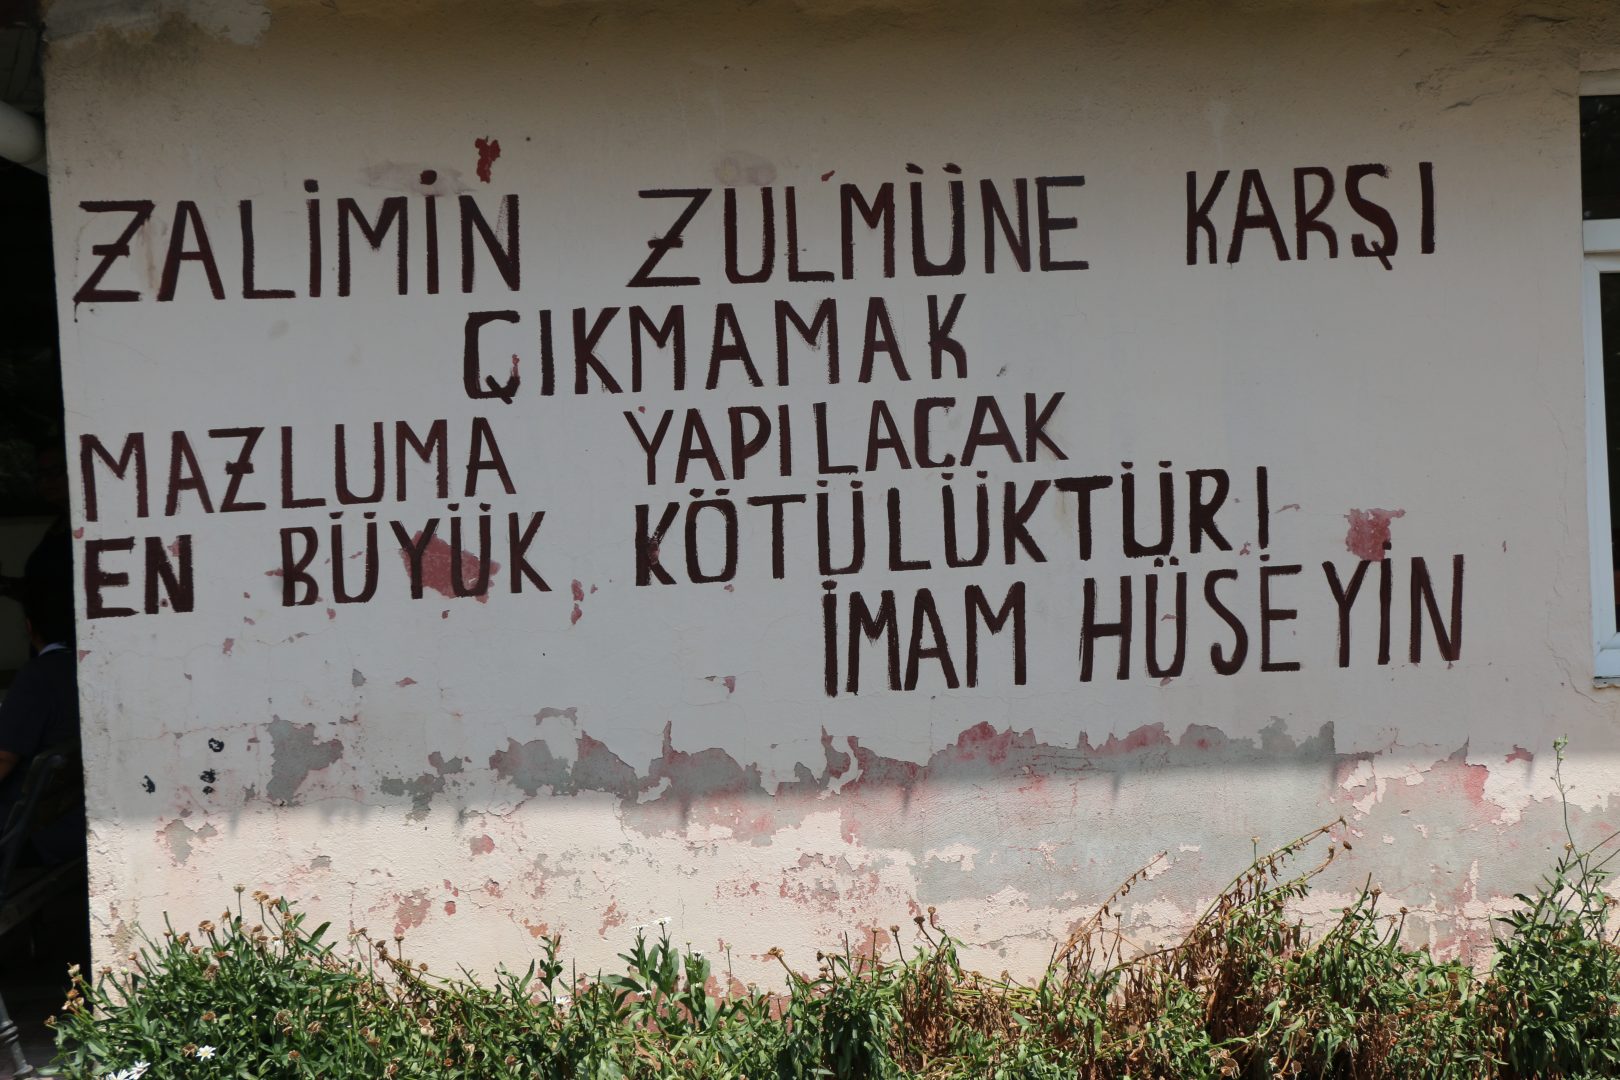 ZALİMİN ZULMÜNE KARŞI
ÇIKMAMAK
MAZLUMA YAPILACAK
EN BÜYÜK KÖTÜLÜKTÜR!
İMAM HÜSEYİN